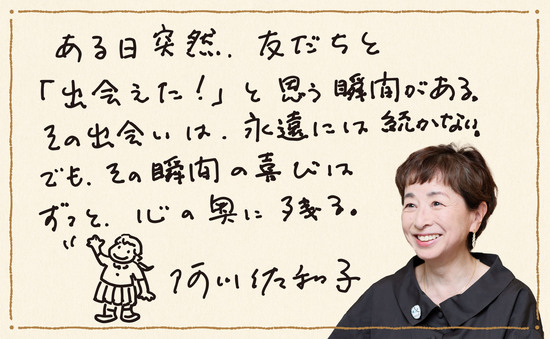 ある日突然、友だちと
「出会えた！」と思う瞬間がある。
その出会いは、永遠には続かない。
でも、その瞬間の喜びは
ずっと、心の奥に残る。
阿川佐和子